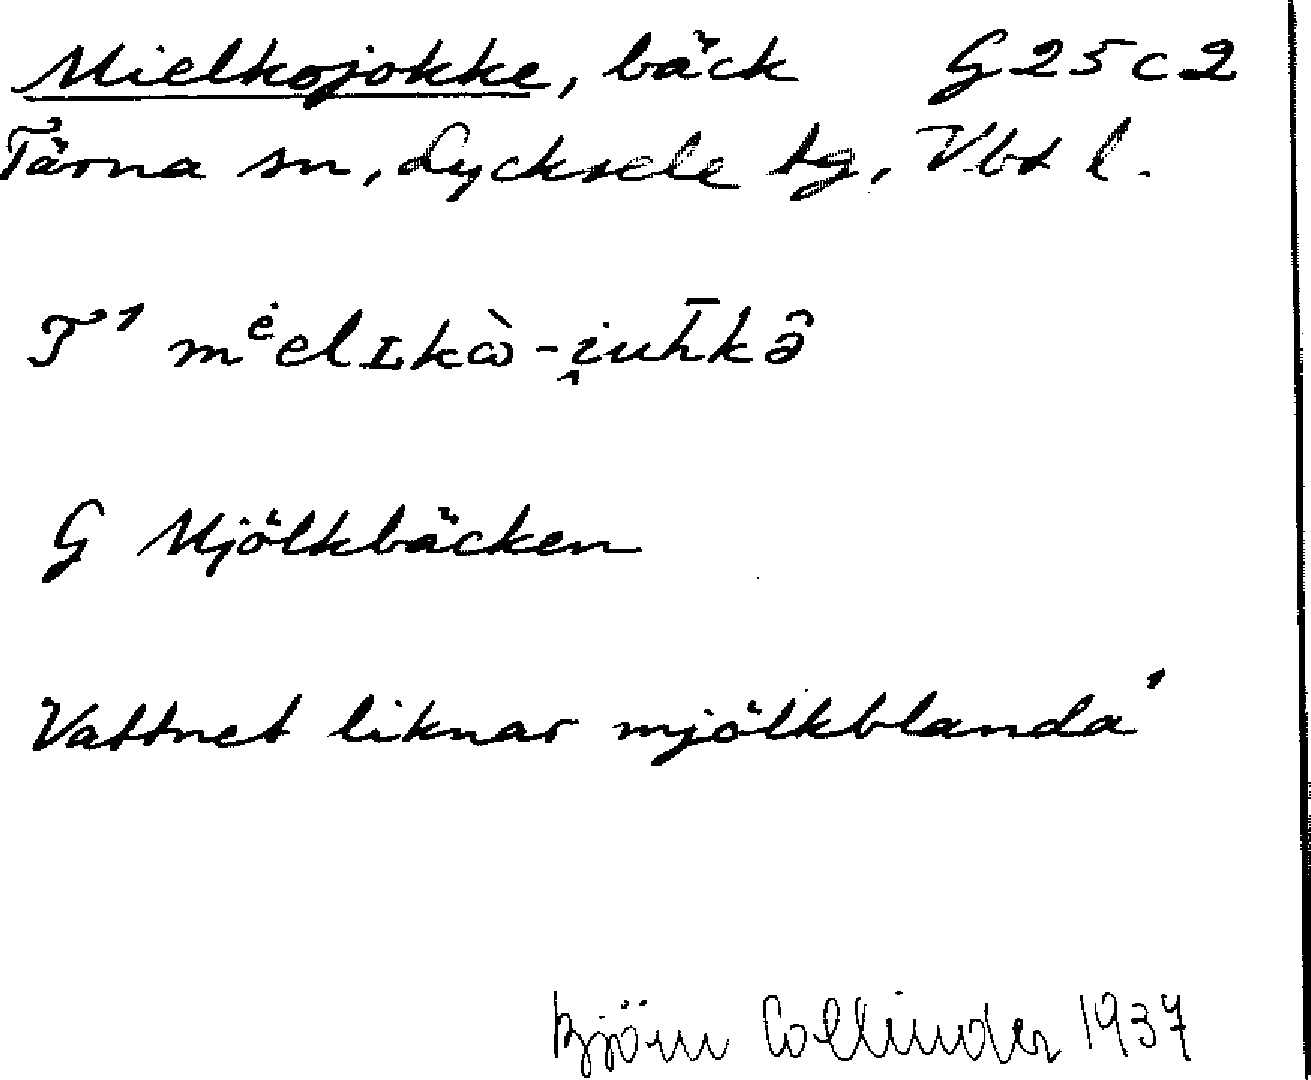 Mielkojokke, bäck G25c2
Tärna sn, Lycksele tg, Vbt l.
T¹ mᵉ̇elɪkὼ-i̯uh̄kə̂
G Mjölkbäcken
Vattnet liknar mjölkblanda¹
Björn Collinder 1937